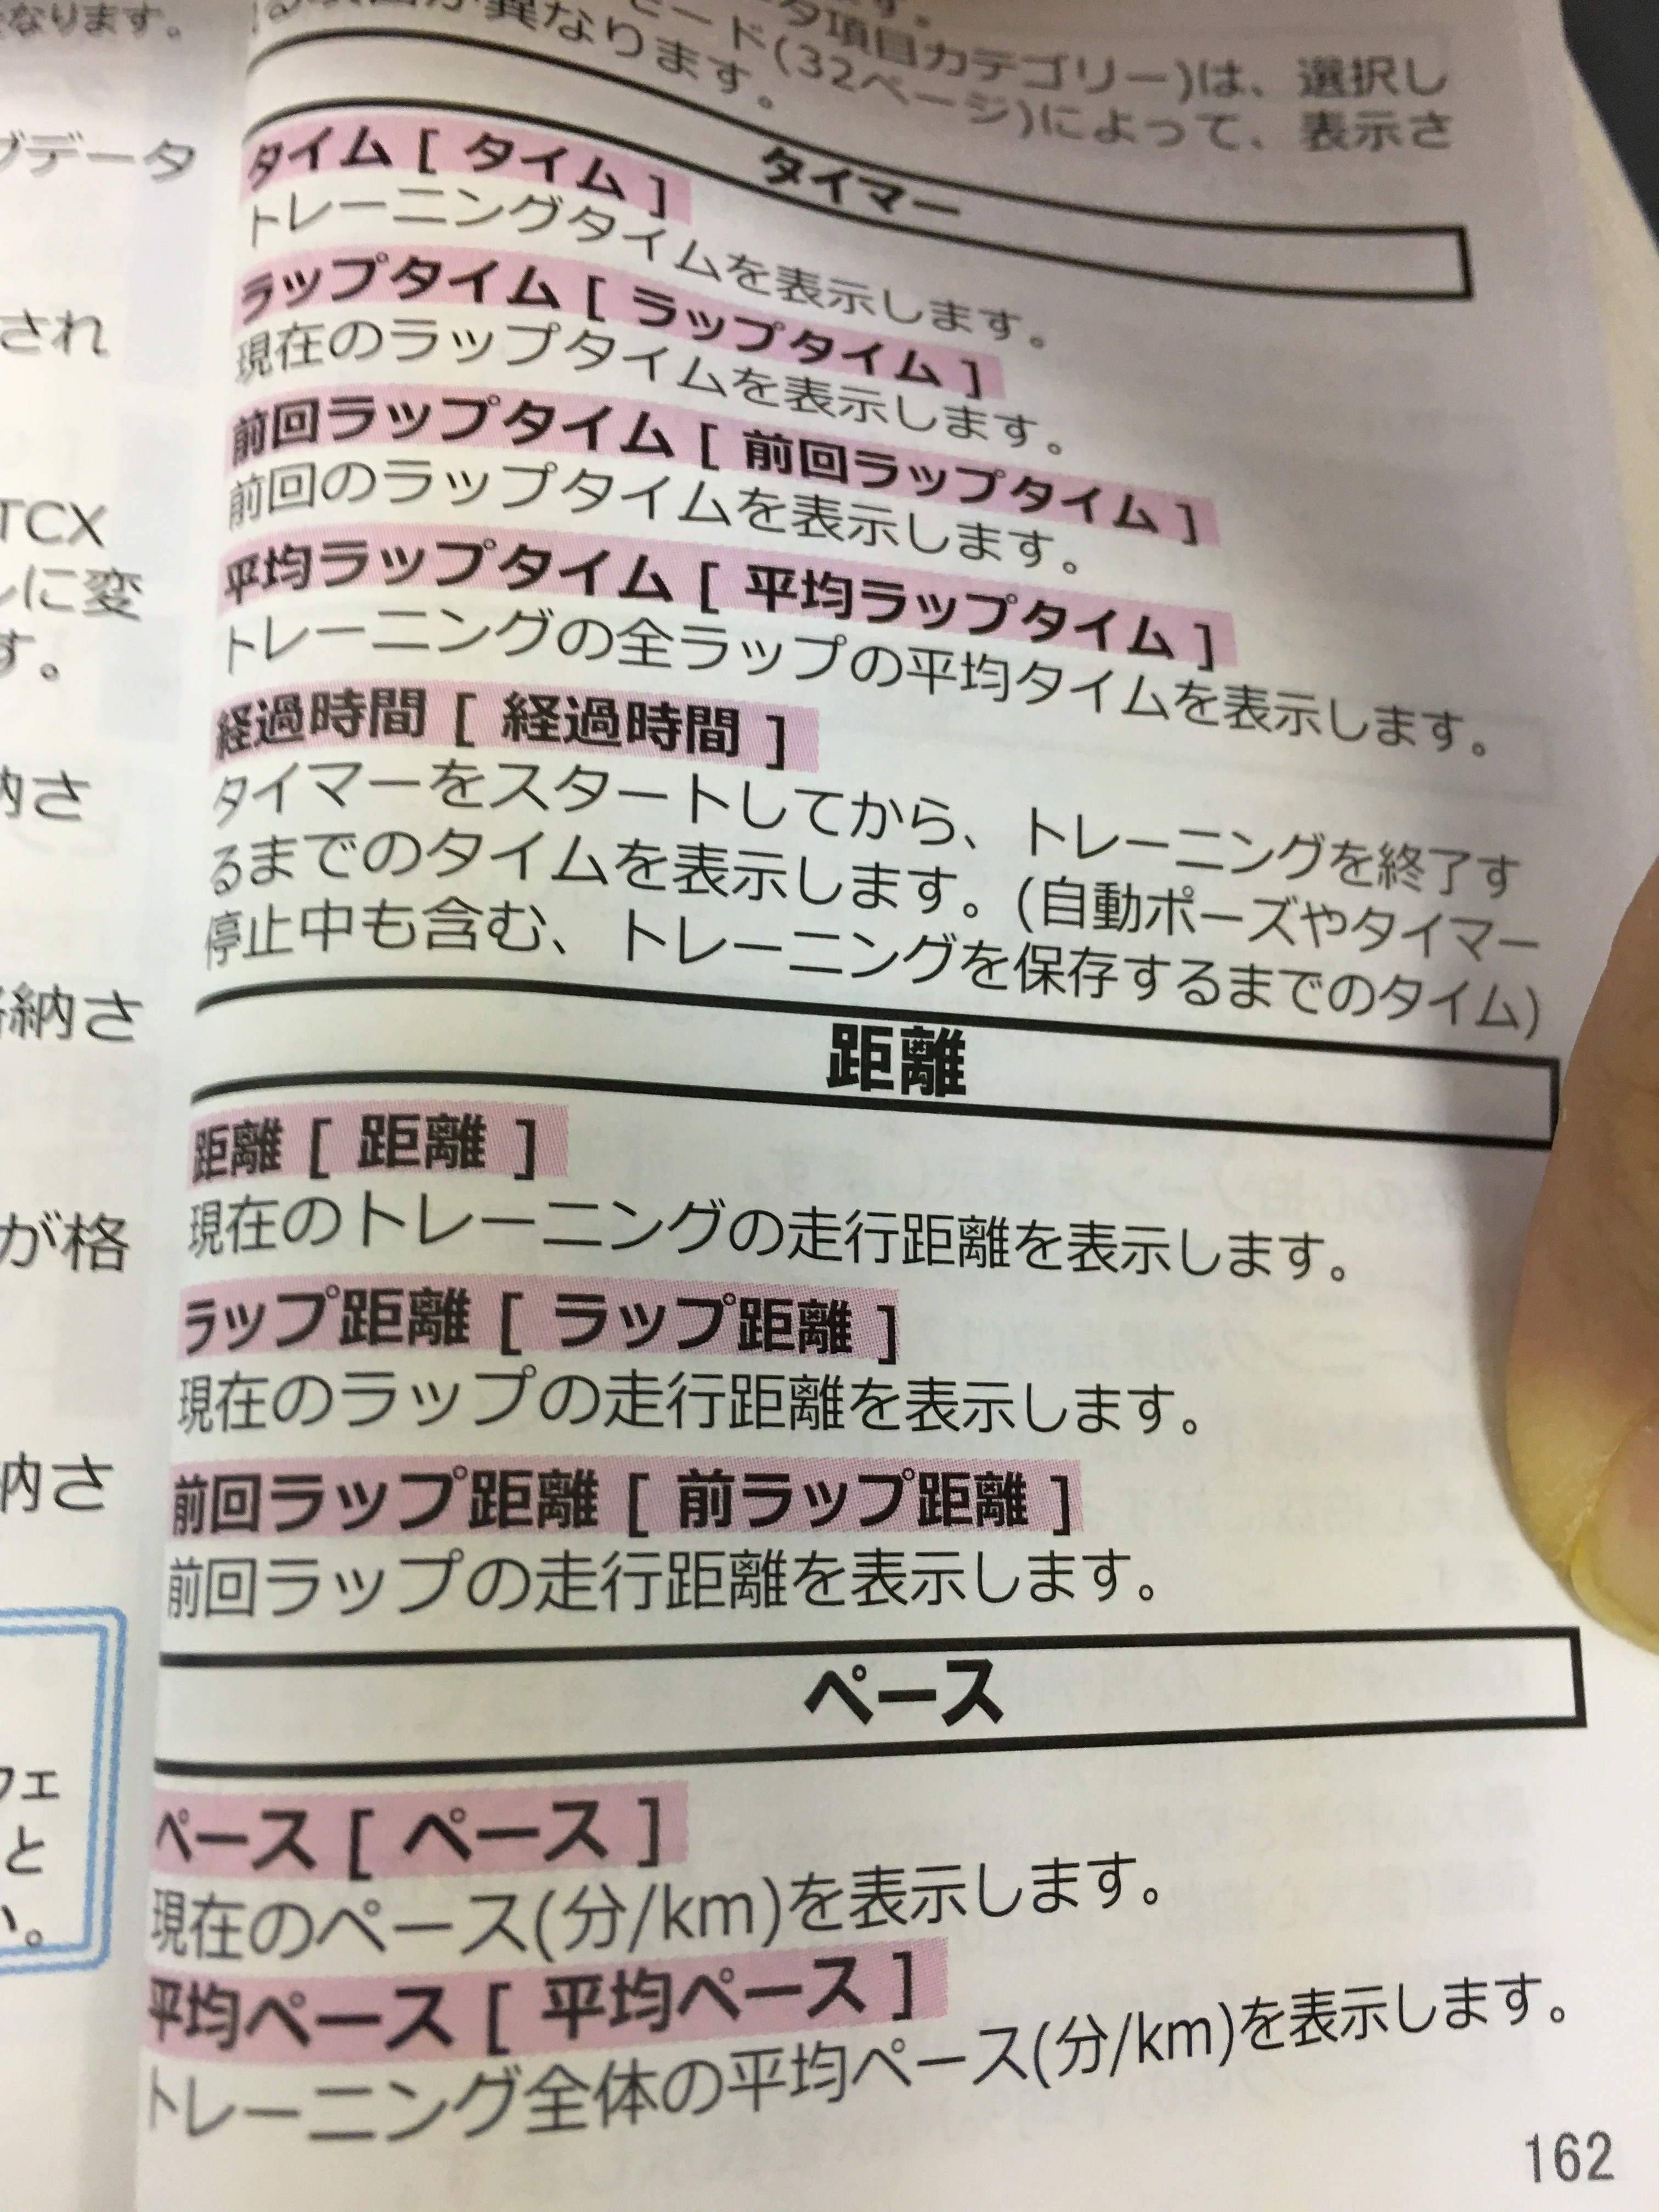 なります。
ブデータ
され
TCX
ルに変
す。
納さ
格納さ
が格
納さ
フェ
と
い。
タ項目カテゴリー)は、選択し
モード(32ページ)によって、表示さ
る項目が異なります。
タイマー
タイム [ タイム ]
トレーニングタイムを表示します。
ラップタイム [ ラップタイム ]
現在のラップタイムを表示します。
前回ラップタイム [ 前回ラップタイム ]
前回のラップタイムを表示します。
平均ラップタイム [ 平均ラップタイム ]
トレーニングの全ラップの平均タイムを表示します。
経過時間 [ 経過時間 ]
タイマーをスタートしてから、トレーニングを終了す
るまでのタイムを表示します。(自動ポーズやタイマー
停止中も含む、トレーニングを保存するまでのタイム)
距離
距離 [ 距離 ]
現在のトレーニングの走行距離を表示します。
ラップ距離 [ ラップ距離 ]
現在のラップの走行距離を表示します。
前回ラップ距離 [ 前ラップ距離 ]
前回ラップの走行距離を表示します。
ペース
ペース [ ペース ]
現在のペース(分/km)を表示します。
平均ペース [ 平均ペース ]
トレーニング全体の平均ペース(分/km)を表示します。
162